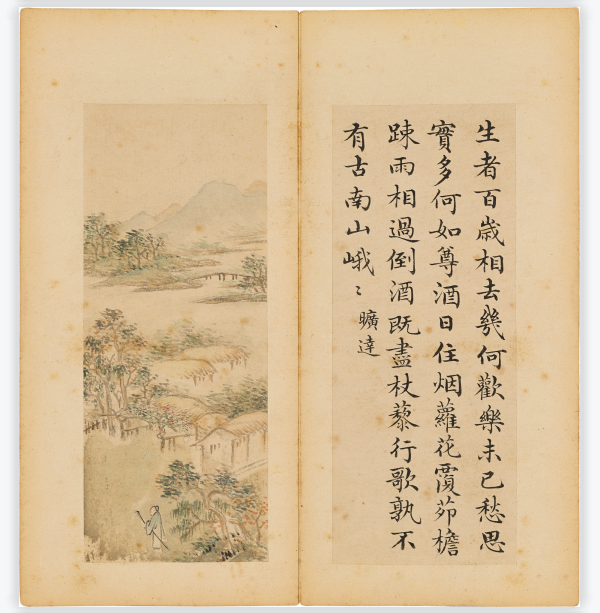 生者百歳相去幾何歡樂未已愁思
實多何如尊酒日住烟蘿花覆茆檐
踈雨相過倒酒既盡杖藜行歌孰不
有古南山峨〻
曠達